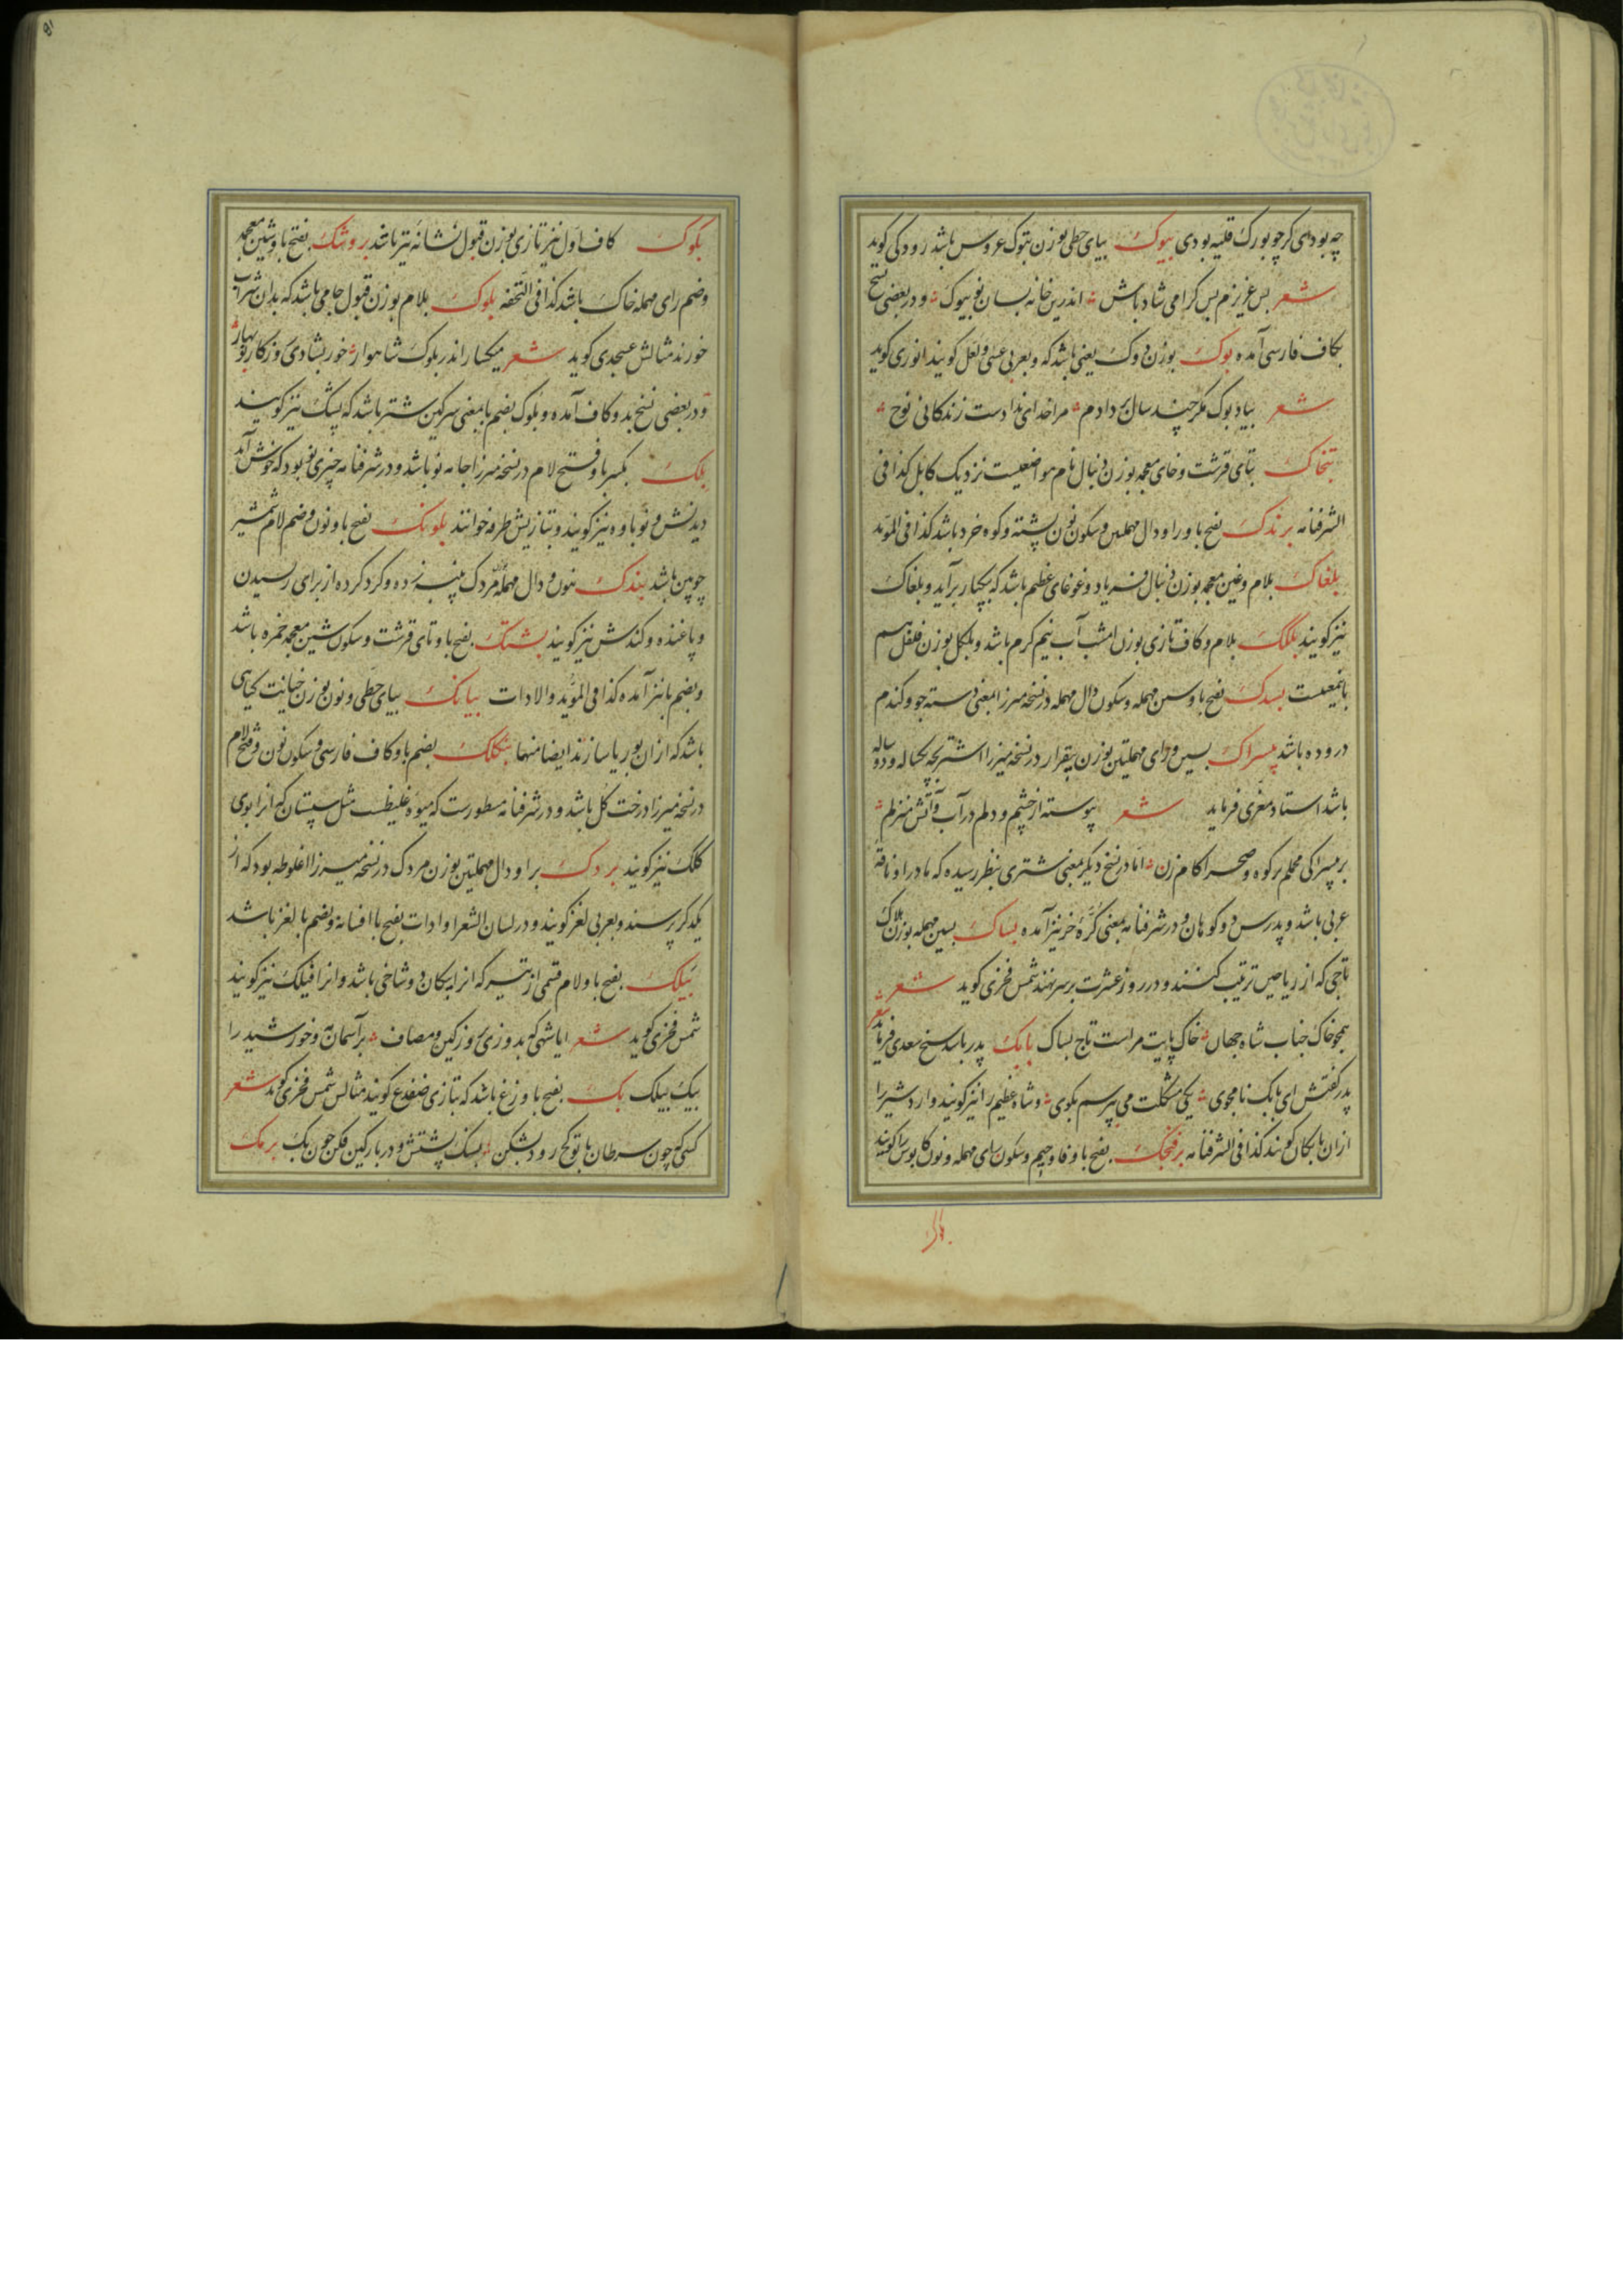 چه بودی گر چو بورک قلیه بودی بیوک بیای حطی بوزن بتوک عروس باشد رودکی گوید
شعر بس عزیزم بس گرامی شاد باش اندرین خانه بسان نو بیوک و در بعضی نسخ
بکاف فارسی آمده بوک بوزن دوک یعنی باشد که و بعربی عسی و لعل گویند انوری گوید
شعر بباد بوک مگر چند سال بر دادم مرا خدای ندادست زندگانی نوح
بتخاک بتای قرشت و خای معجمه بوزن دنبال نام مواضعیست نزدیک کابل کذا فی
الشرفنامه برندک بفتح با و را و دال مهملتین و سکون نون پشته و کوه خرد باشد کذا فی المؤید
بلغاک بلام و غین معجمه بوزن دنبال فریاد و غوغای عظیم باشد که بیکبار برآید و بلغاک
نیز گویند بلکک بلام و کاف تازی بوزن امشب آب نیم گرم باشد و بلکل بوزن فلفل هم
باینمعنیست بسدک بفتح با و سین مهمله و سکون دال مهمله در نسخه میرزا بمعنی دسته جو و گندم
دروده باشد بیسراک بسین و رای مهملتین بوزن بیقرار در نسخه میرزا اشتر بچه یکساله و دو ساله
باشد استاد معزی فرماید شعر پیوسته از چشم و دلم در آب و آتش منزلم
بر بیسراکی محملم بر کوه و صحرا گام زن اما در نسخ دیگر بمعنی شتری بنظر رسیده که مادر او ناقه
عربی باشد و پدرس دو کوهان و در شرفنامه بمعنی کره خر نیز آمده بساک بسین مهمله بوزن هلاک
تاجی که از ریاحین ترتیب کنند و در روز عشرت بر سر نهند شمس فخری گوید شعر
همچو خاک جناب شاه جهان خاک پایت مراست تاج بساک بابک پدر باشد شیخ سعدی فرماید شعر
پدر گفتش ای بابک نامجوی یکی مشکلت می بپرسم بگوی و شاه عظیم را نیز گویند و اردشیر را
از ان بابکان گویند کذا فی الشرفنامه برفجک بفتح با و فا و جیم و سکون رای مهمله و نون کابوس را گویند
بکوک کاف اول نیز تازی بوزن قبول نشانه تیر باشد بروشک بفتح با و شین معجمه
و ضم رای مهمله خاک باشد کذا فی التحفه بلوک بلام بوزن قبول جامی باشد که بدان شراب
خورند مثالش عسجدی گوید شعر میکسار اندر بلوک شاهوار خور بشادی روزگار نوبهار
و در بعضی نسخ بدو کاف آمده و بلوک بضم با بمعنی سرگین شتر باشد که پشک نیز گویند
بلک بکسر با و فتح لام در نسخه میرزا جامه نو باشد و در شرفنامه چیزی نو بود که خوش آید
دیدنش و نوباوه نیز گویند و بتازیش طرفه خوانند بلونک بفتح با و نون و ضم لام شمشیر
چوبین باشد بندک بنون و دال مهمله مردک پنبه زده و گرد کرده از برای رسیدن
و پاغنده و کندش نیز گویند بشتک بفتح با و تای قرشت و سکون شین معجمه خمره باشد
و بضم با نیز آمده کذا فی المؤید و الادات بیانک بیای حطی و نون بوزن خیانت گیاهی
باشد که از ان بوریا سازند ایضا منها بنکلک بضم با و کاف فارسی و سکون نون و فتح لام
در نسخه میرزا درخت گل باشد و در شرفنامه مسطورست که میوه غلیظست مثل سپستان که انرا بوی
کلک نیز گویند بردک برا و دال مهملتین بوزن مردک در نسخه میرزا اغلوطه بود که از
یکدگر پرسند و بعربی لغز گویند و در لسان الشعرا و ادات بفتح با افسانه و بضم با لغز باشد
بیلک بفتح با و لام قسمی از تیر که انرا پیکان دو شاخی باشد و انرا فیلک نیز گویند
شمس فخری گوید شعر ایا شهی که بدوزی بروز کین و مصاف بر آسمان مه و خورشید را
بیک بیلک بک بفتح با وزغ باشد که بتازی ضفدع گویند مثالس شمس فخری گوید شعر
کسی که چون سرطان با تو کج رود بشکن بسنگ پشتش و در بارگین فکن چون بک برمک